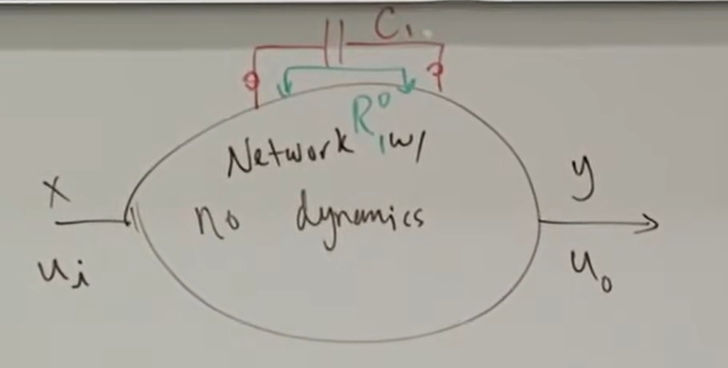 C₁
R₁⁰
Network w/
no dynamics
x
u_i
y
u_o